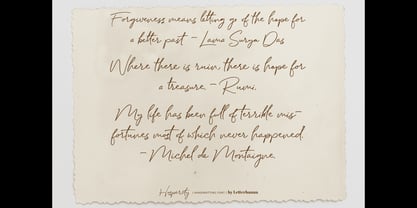 Forgiveness means letting go of the hope for
a better past - Lama Surya Das
Where there is ruin, there is hope for
a treasure. - Rumi.
My life has been full of terrible mis-
fortunes most of which never happened.
- Michel de Montaigne.
HANDWRITTEN FONT by Letterhanna